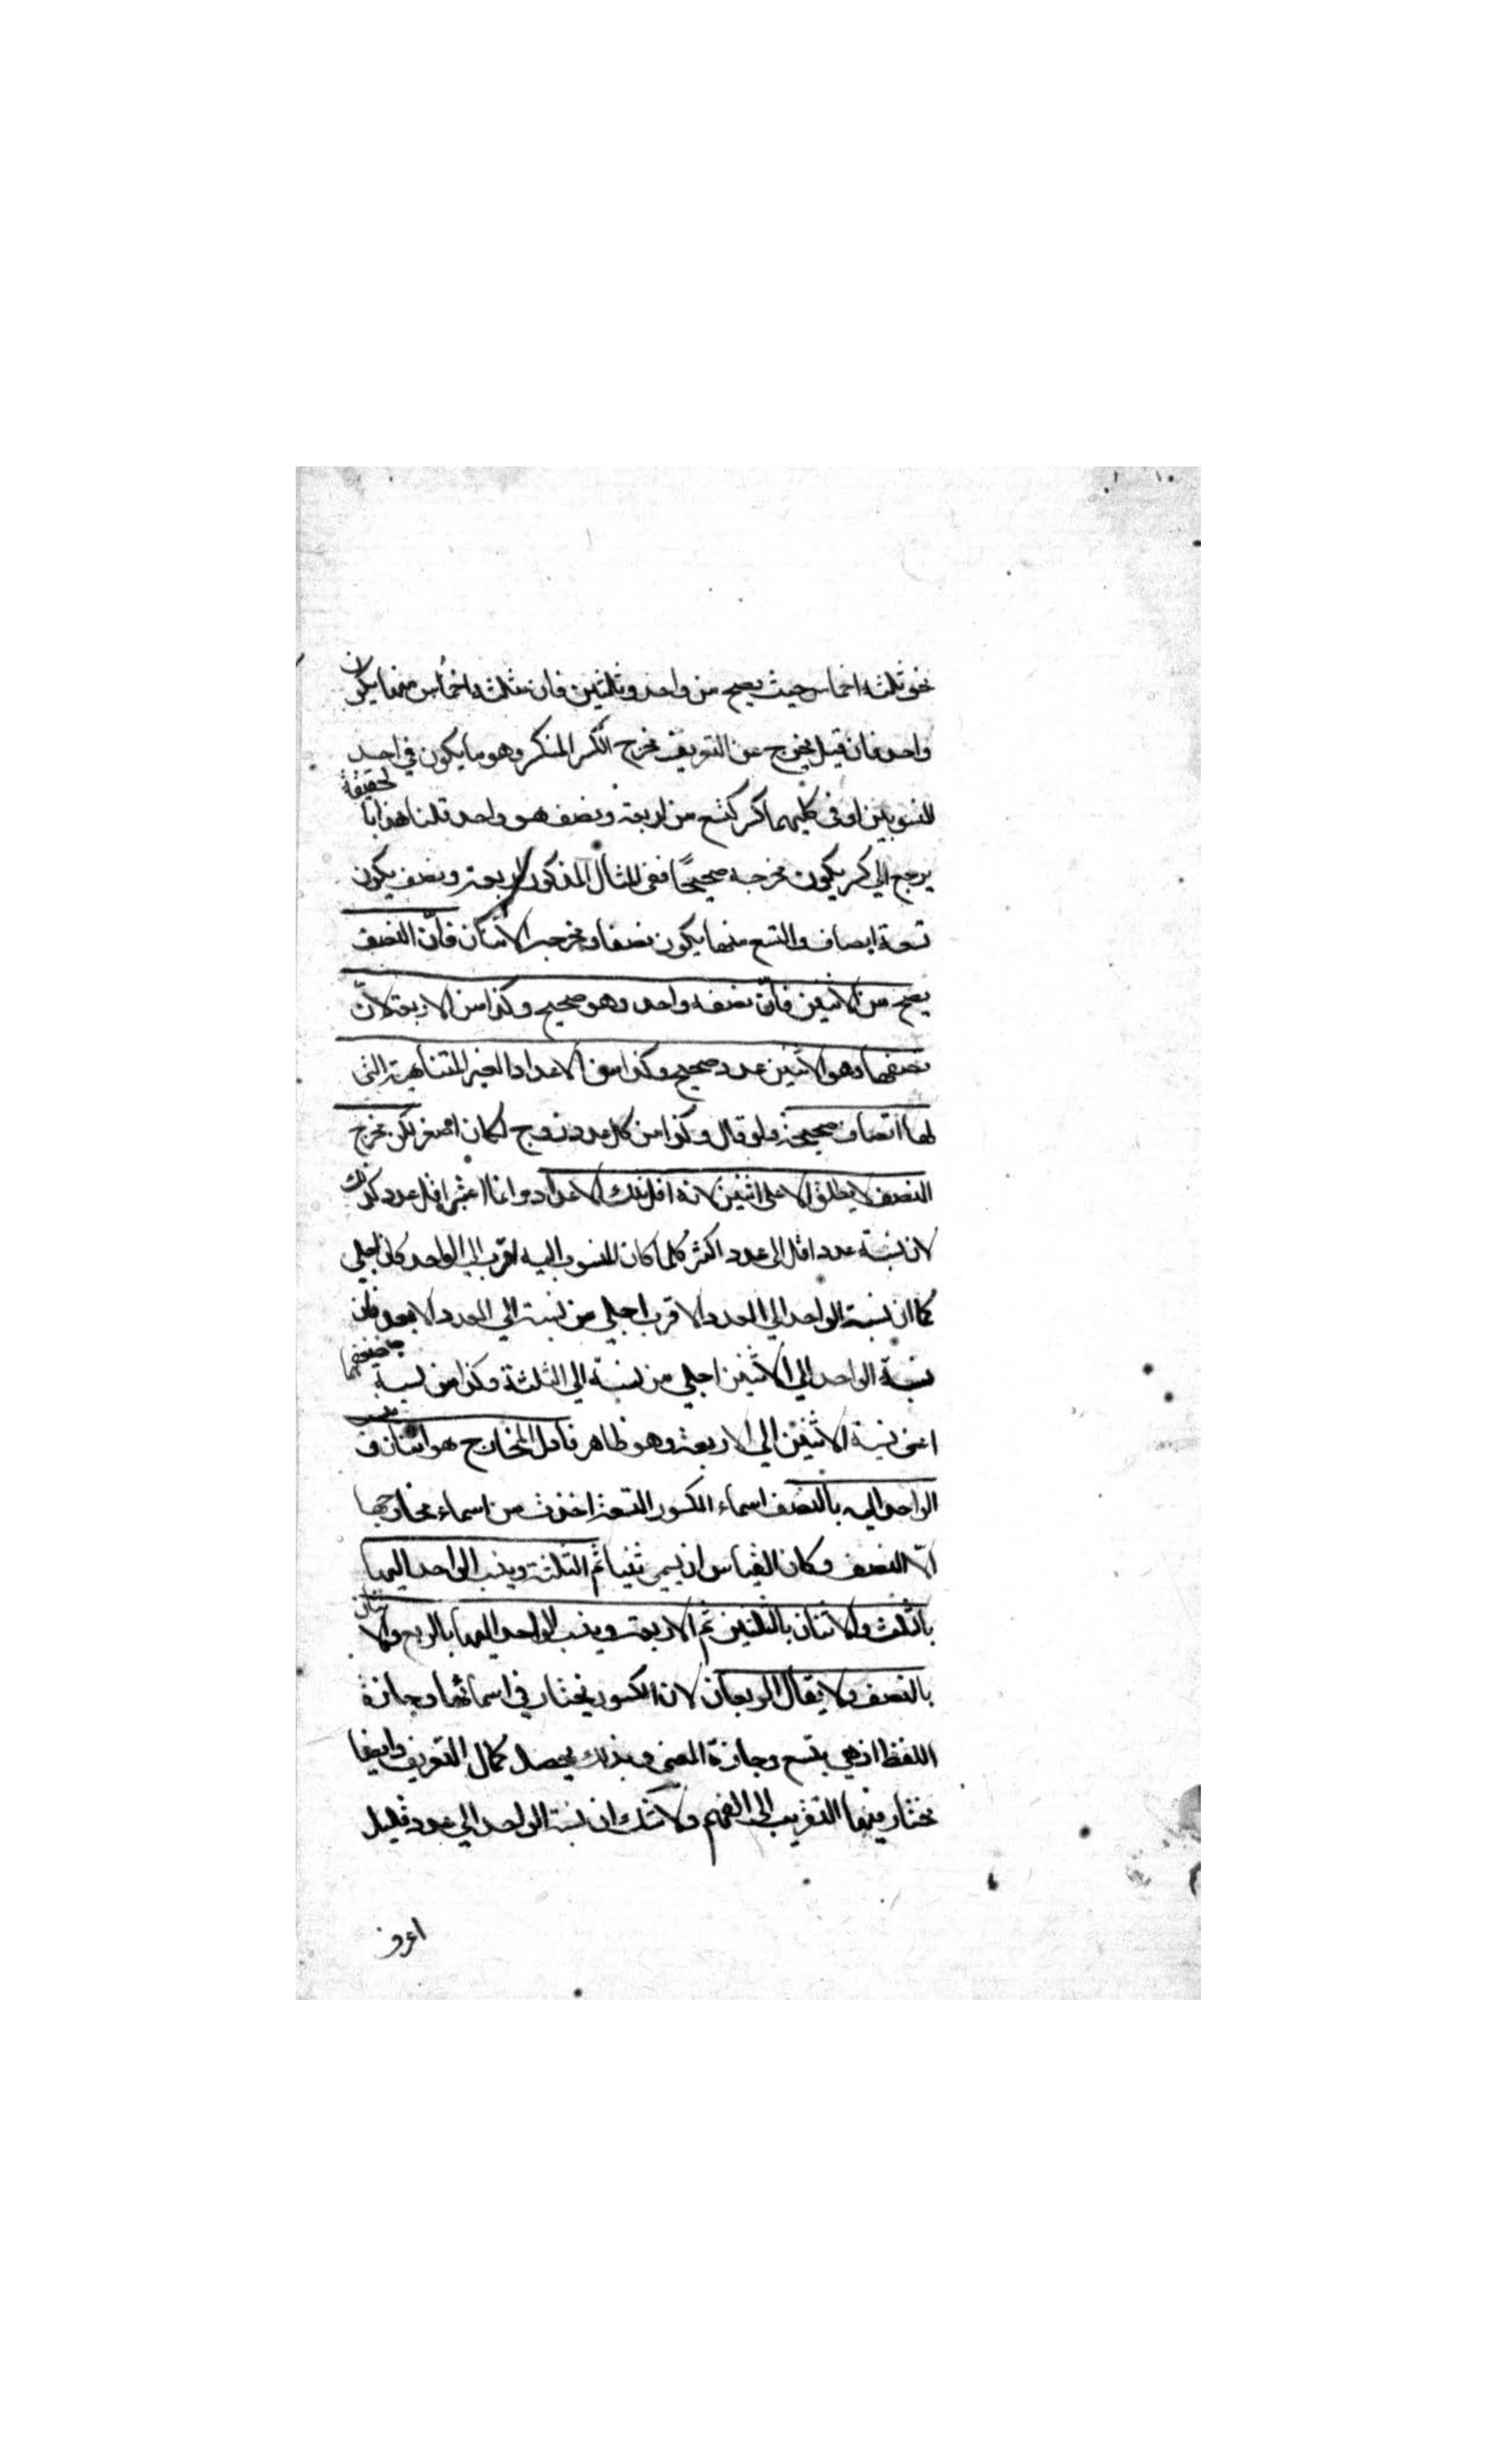 نحو ثلثة اخماس حيث يصح من واحد وثلثين فان ثلثة اخماس منهما يكون
واحد فان قيل يخرج عن التعريف مخرج الكسر المنكسر وهو ما يكون في احد
المنسوبين او في كليهما كسر كتسع من اربعة ونصف هو واحد قلنا هذا بالحقيقة
يرجع الي كسر يكون مخرجه صحيحًا ففي المثال المذكور الاربعة ونصف يكون
تسعة انصاف والتسع منها يكون نصفا ومخرجه الاثنان فانّ النصف
يصح من الاثنين فانّ نصفه واحد وهو صحيح وكذا من الاربعة لانّ
نصفها وهو الاثنين عدد صحيح وكذا من الاعداد الغير المتناهية التي
لها انصاف صحيحة ولو قال وكذا من كل عدد زوج لكان اخصر لكن مخرج
النصف لا يطلق الا علي اثنين لانه اقل تلك الاعداد وانما اعتبر اقل عدد كذلك
لان نسبة عدد اقل الي عدد اكثر كلما كان المنسوب اليه اقرب الي الواحد كان اجلي
كما ان نسبة الواحد الي العدد الاقرب اجلي من نسبته الي العدد الابعد فان
نسبة الواحد الي الاثنين اجلي من نسبته الي الثلثة وكذا من نسبة ضعفهما
اعني نسبة الاثنين الي الاربعة وهو ظاهر فاول المخارج هو اثنان وينسب
الواحد اليه بالنصف اسماء الكسور التسعة اخذت من اسماء مخارجها
الّا النصف وكان القياس ان يسمي ثنيا ثم الثلثة وينسب الواحد اليها
بالثلث والاثنان بالثلثين ثم الاربعة وينسب الواحد اليها بالربع والاثنان
بالنصف ولا يقال الربعان لان الكسور يختار في اسمائها وجازة
اللفظ اذ هي يتبع وجازة المعني وبذلك يحصل كمال التعريف وايضا
يختار منها التقريب الي الفهم ولا شك ان نسبة الواحد الي عدد قليل
اعرف